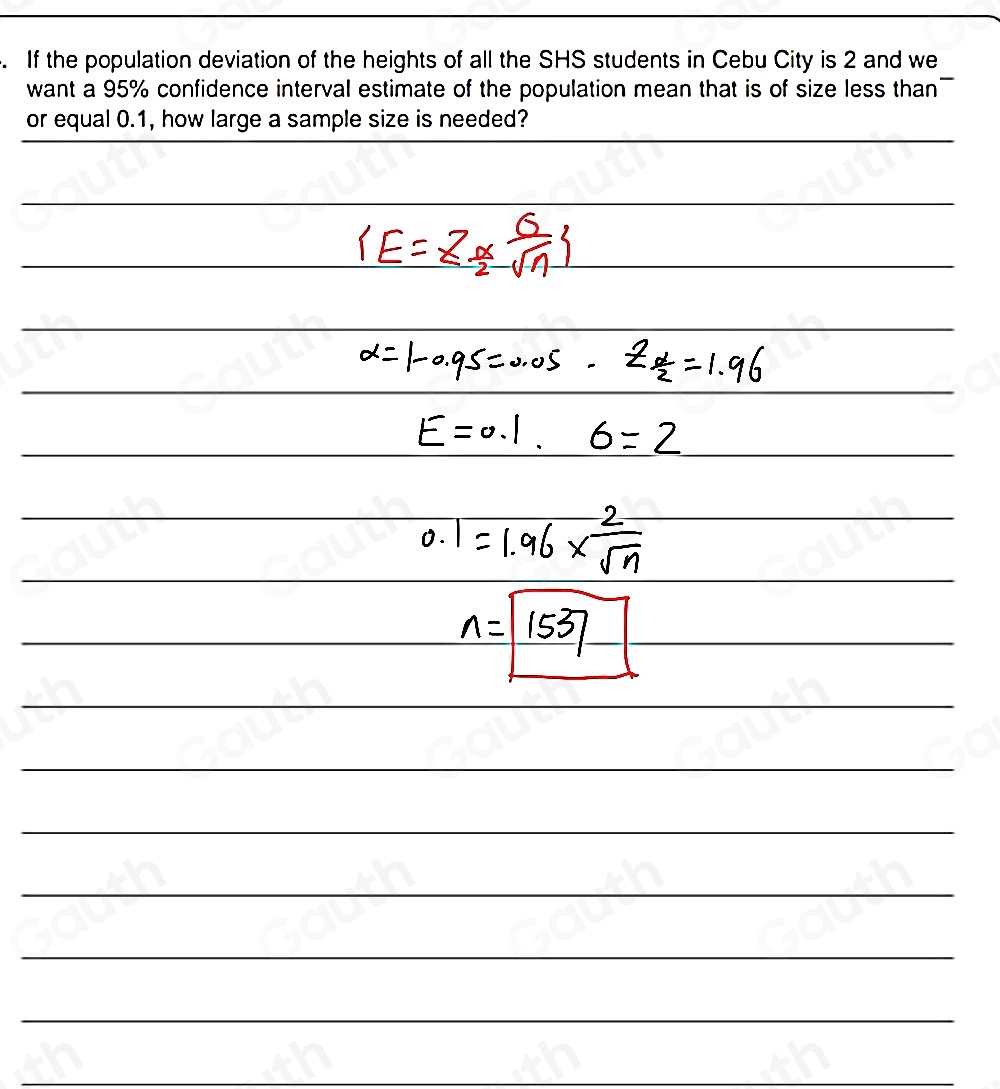 . If the population deviation of the heights of all the SHS students in Cebu City is 2 and we
want a 95% confidence interval estimate of the population mean that is of size less than
or equal 0.1, how large a sample size is needed?
{E = Z α/2 σ/√n}
α = 1-0.95 = 0.05 . Z α/2 = 1.96
E = 0.1 . σ = 2
0.1 = 1.96 × 2/√n
n = 1537
Gauth